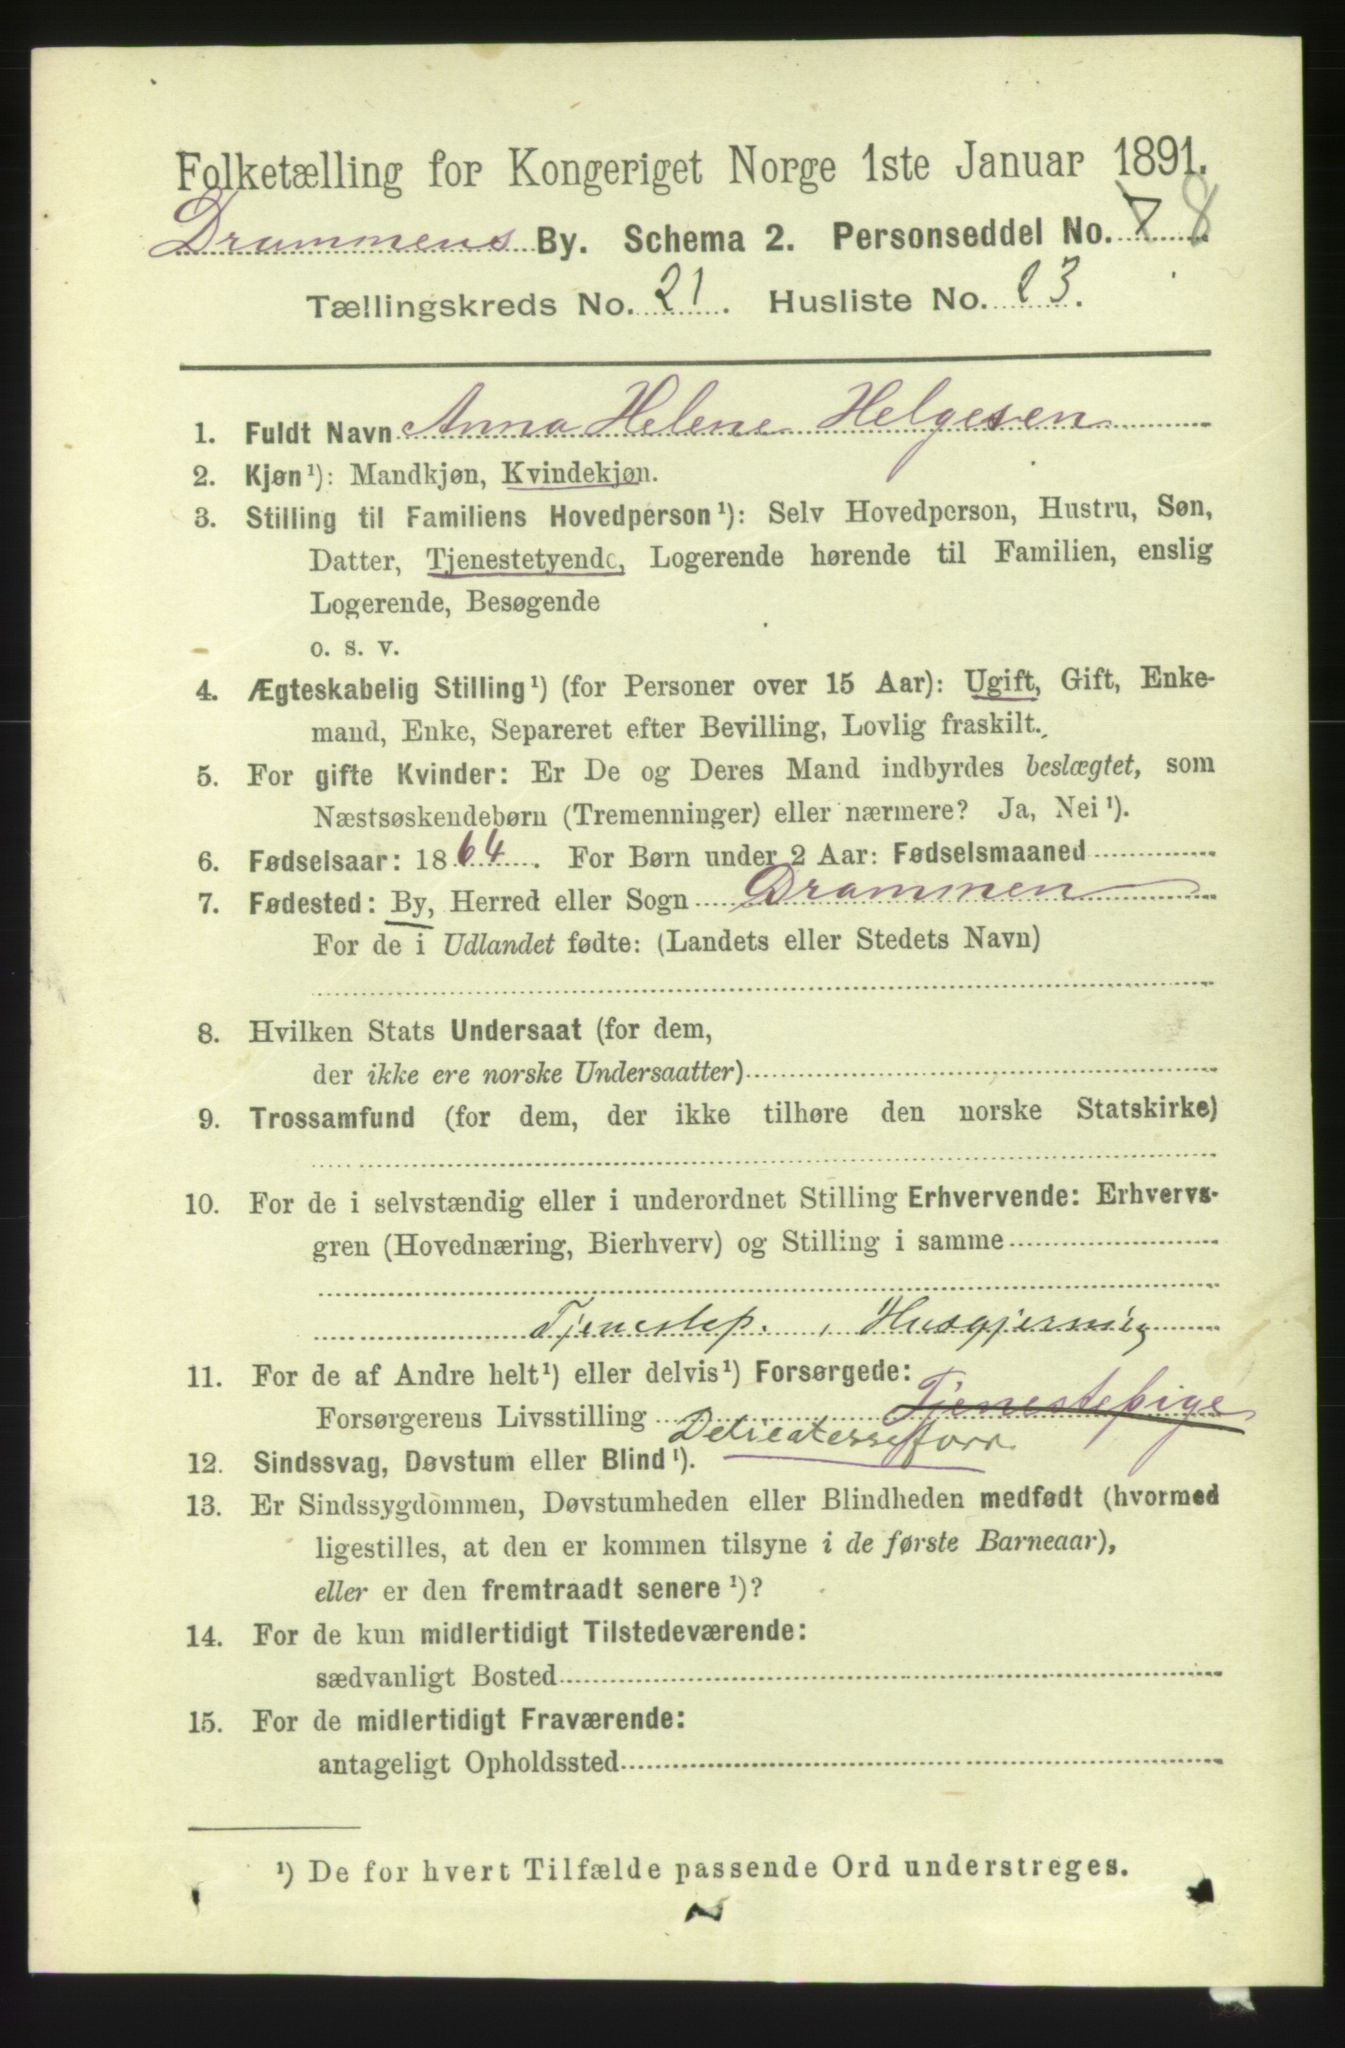 Folketælling for Kongeriget Norge 1ste Januar 1891.
Drammens By. Schema 2. Personseddel No. 8
Tællingskreds No. 21. Husliste No. 23.
1. Fuldt Navn Anna Helene Helgesen
2. Kjøn¹): Mandkjøn, Kvindekjøn.
3. Stilling til Familiens Hovedperson¹): Selv Hovedperson, Hustru, Søn,
Datter, Tjenestetyende, Logerende hørende til Familien, enslig
Logerende, Besøgende
o. s. v.
4. Ægteskabelig Stilling¹) (for Personer over 15 Aar): Ugift, Gift, Enke-
mand, Enke, Separeret efter Bevilling, Lovlig fraskilt.
5. For gifte Kvinder: Er De og Deres Mand indbyrdes beslægtet, som
Næstsøskendebørn (Tremenninger) eller nærmere? Ja, Nei¹).
6. Fødselsaar: 1864. For Børn under 2 Aar: Fødselsmaaned
7. Fødested: By, Herred eller Sogn Drammen
For de i Udlandet fødte: (Landets eller Stedets Navn)
8. Hvilken Stats Undersaat (for dem,
der ikke ere norske Undersaatter)
9. Trossamfund (for dem, der ikke tilhøre den norske Statskirke)
10. For de i selvstændig eller i underordnet Stilling Erhvervende: Erhvervs-
gren (Hovednæring, Bierhverv) og Stilling i samme
Tjenestep. i Husgjerning
11. For de af Andre helt¹) eller delvis¹) Forsørgede:
Forsørgerens Livsstilling Tjenestepige
Delicatesseforr.
12. Sindssvag, Døvstum eller Blind¹).
13. Er Sindssygdommen, Døvstumheden eller Blindheden medfødt (hvormed
ligestilles, at den er kommen tilsyne i de første Barneaar),
eller er den fremtraadt senere¹)?
14. For de kun midlertidigt Tilstedeværende:
sædvanligt Bosted
15. For de midlertidigt Fraværende:
antageligt Opholdssted
¹) De for hvert Tilfælde passende Ord understreges.